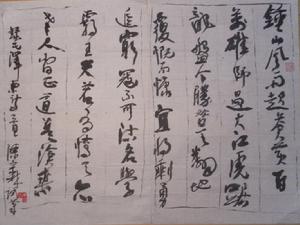 鍾山風雨起蒼黄百
萬雄師過大江虎踞
龍盤今勝昔天翻地
覆慨而慷宜將剩勇
追窮寇不可沽名學
霸王天若有情天亦
老人間正道是滄桑
毛澤東詩